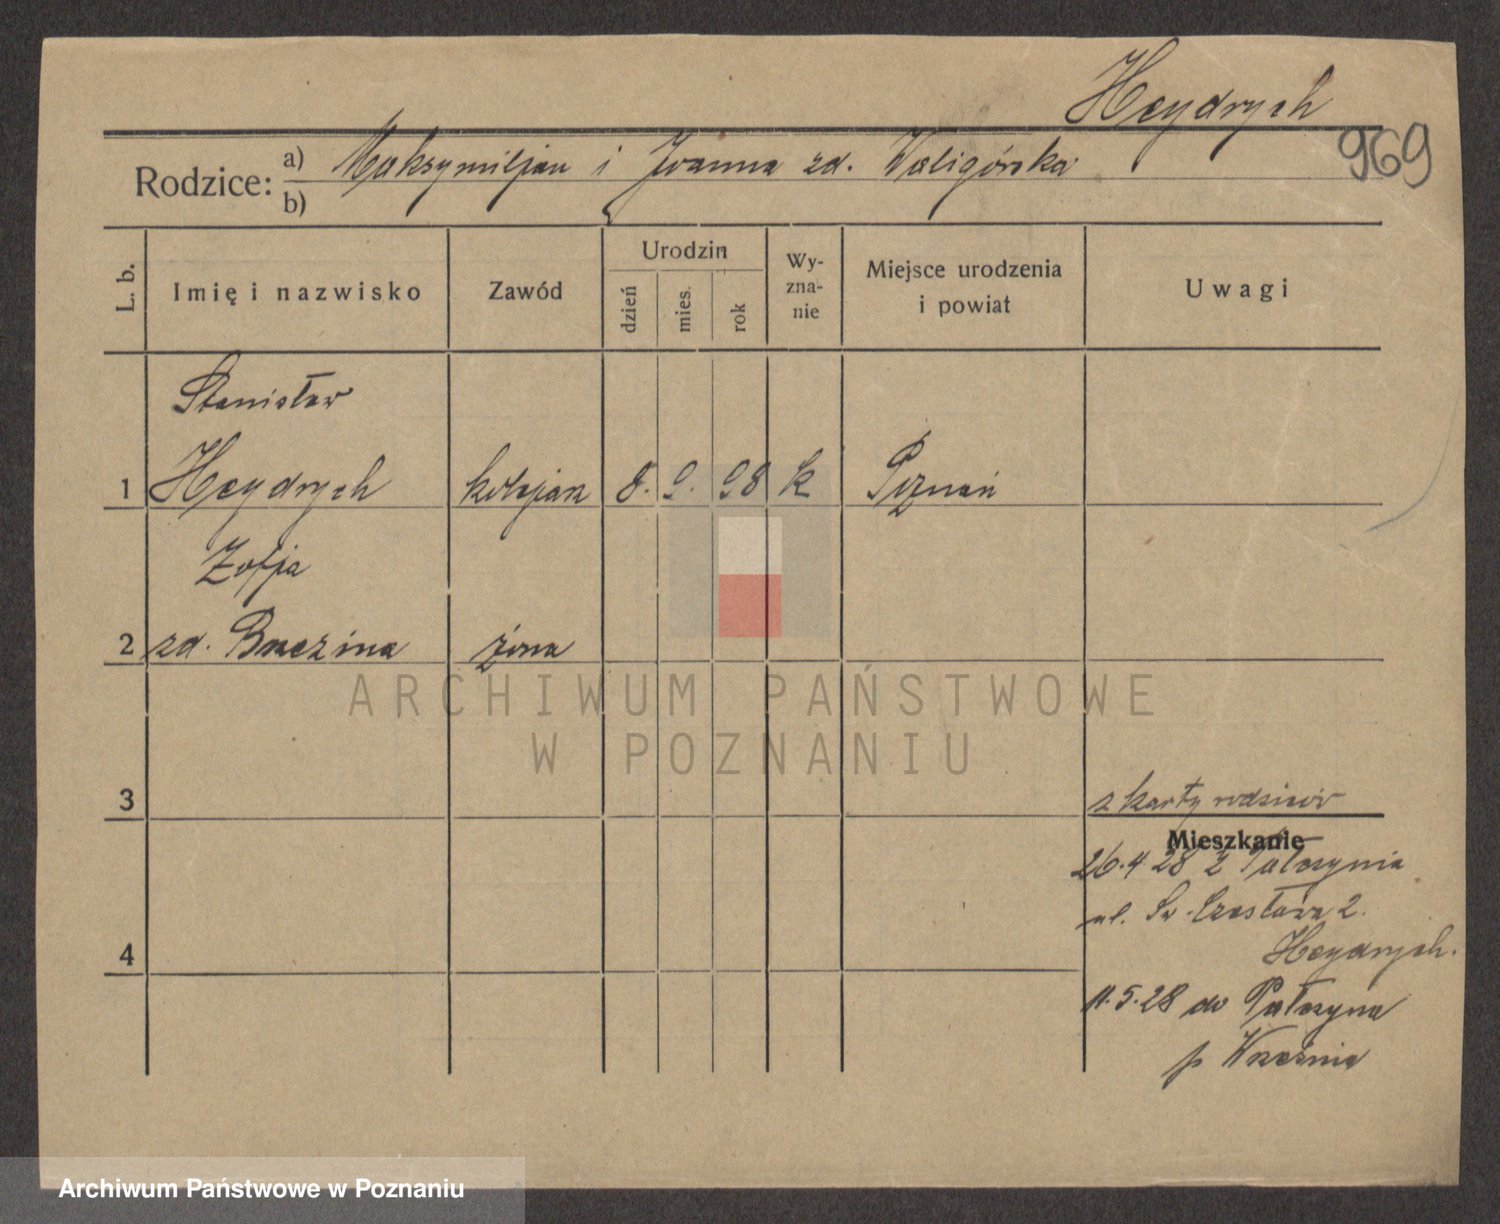 Heydrych
969
Rodzice: a) Maksymiljan i Joanna zd. Waligórska
b)
L. b. Imię i nazwisko Zawód Urodzin dzień mies. rok Wyznanie Miejsce urodzenia i powiat Uwagi
Stanisław
1 Heydrych kolejarz 8. 9. 98 k Poznań
Zofja
2 zd. Brzezina żona
ARCHIWUM PAŃSTWOWE
W POZNANIU
3 z karty rodziców
Mieszkanie
26.4 28 z Pałczynia
ul. Św. Czesława 2.
4 Heydrych.
11.5.28 do Pałczyna
p Września
Archiwum Państwowe w Poznaniu